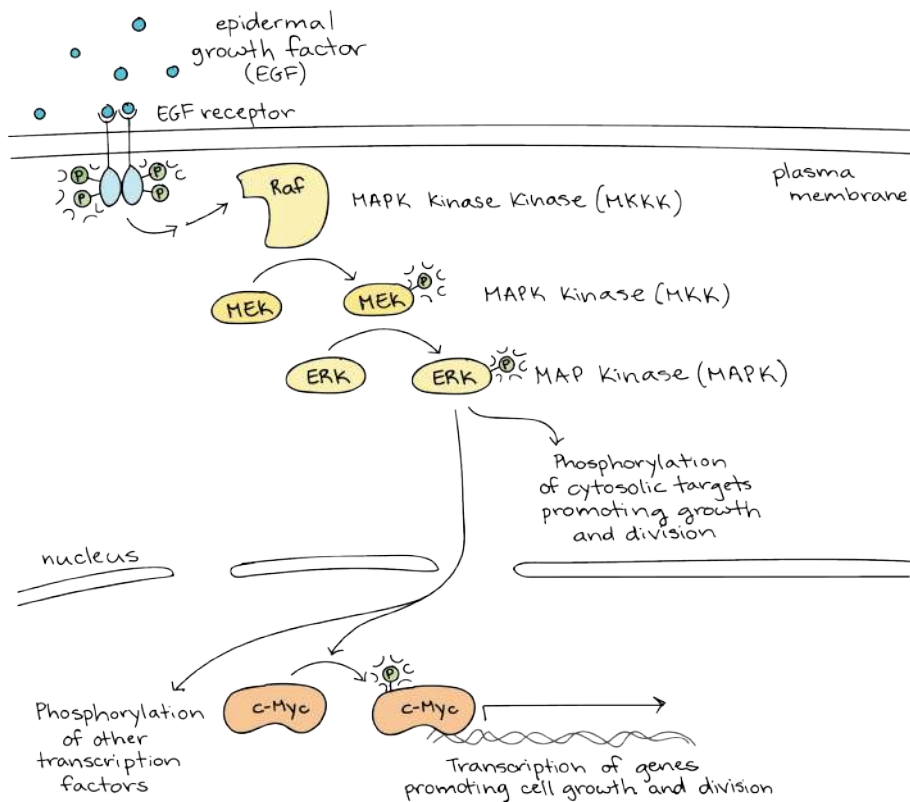 epidermal
growth factor
(EGF)
EGF receptor
P
P
P
P
Raf
plasma
membrane
MAPK Kinase Kinase (MKKK)
MEK
MEK
P
MAPK Kinase (MKK)
ERK
ERK
P
MAP Kinase (MAPK)
Phosphorylation
of cytosolic targets
promoting growth
and division
nucleus
P
c-Myc
c-Myc
Phosphorylation
of other
transcription
factors
Transcription of genes
promoting cell growth and division